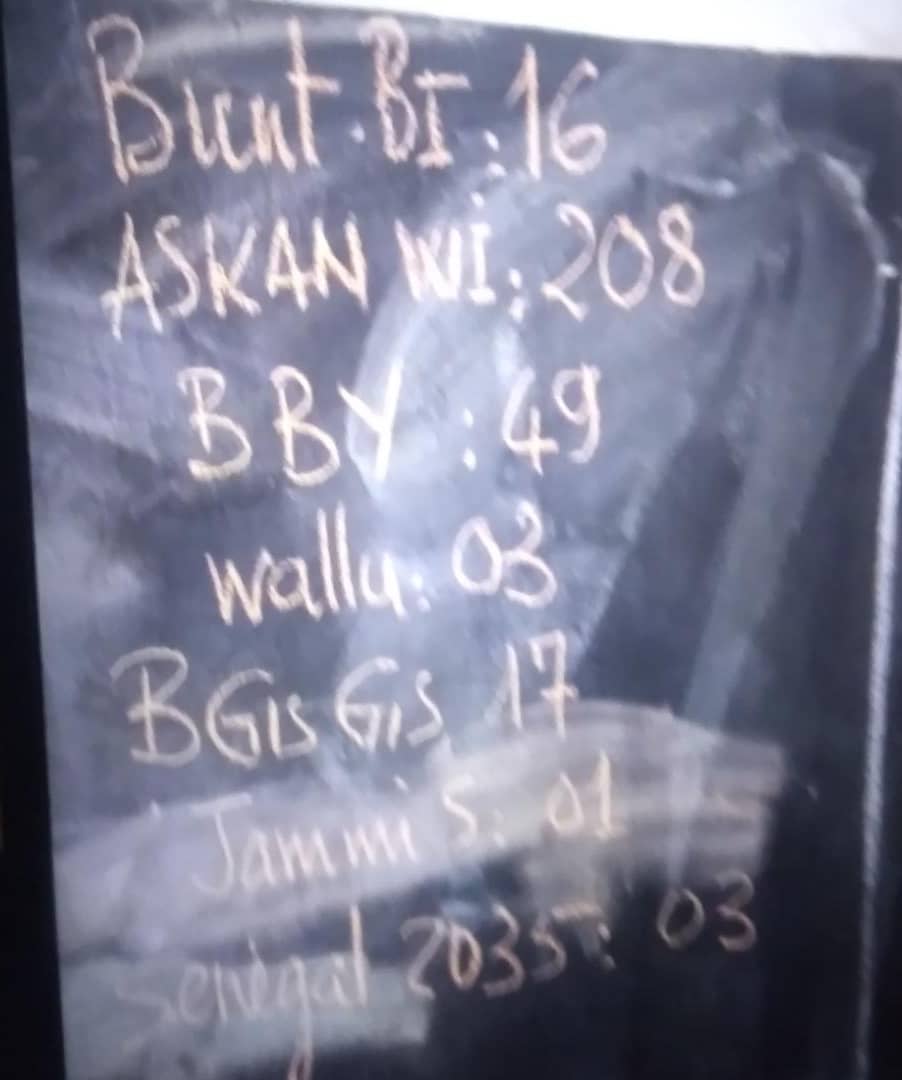 Bunt.BI:16
ASKAN WI: 208
BBY: 49
wallu: 03
BGis Gis 17
Jammi S: 01
Senegal 2035: 03